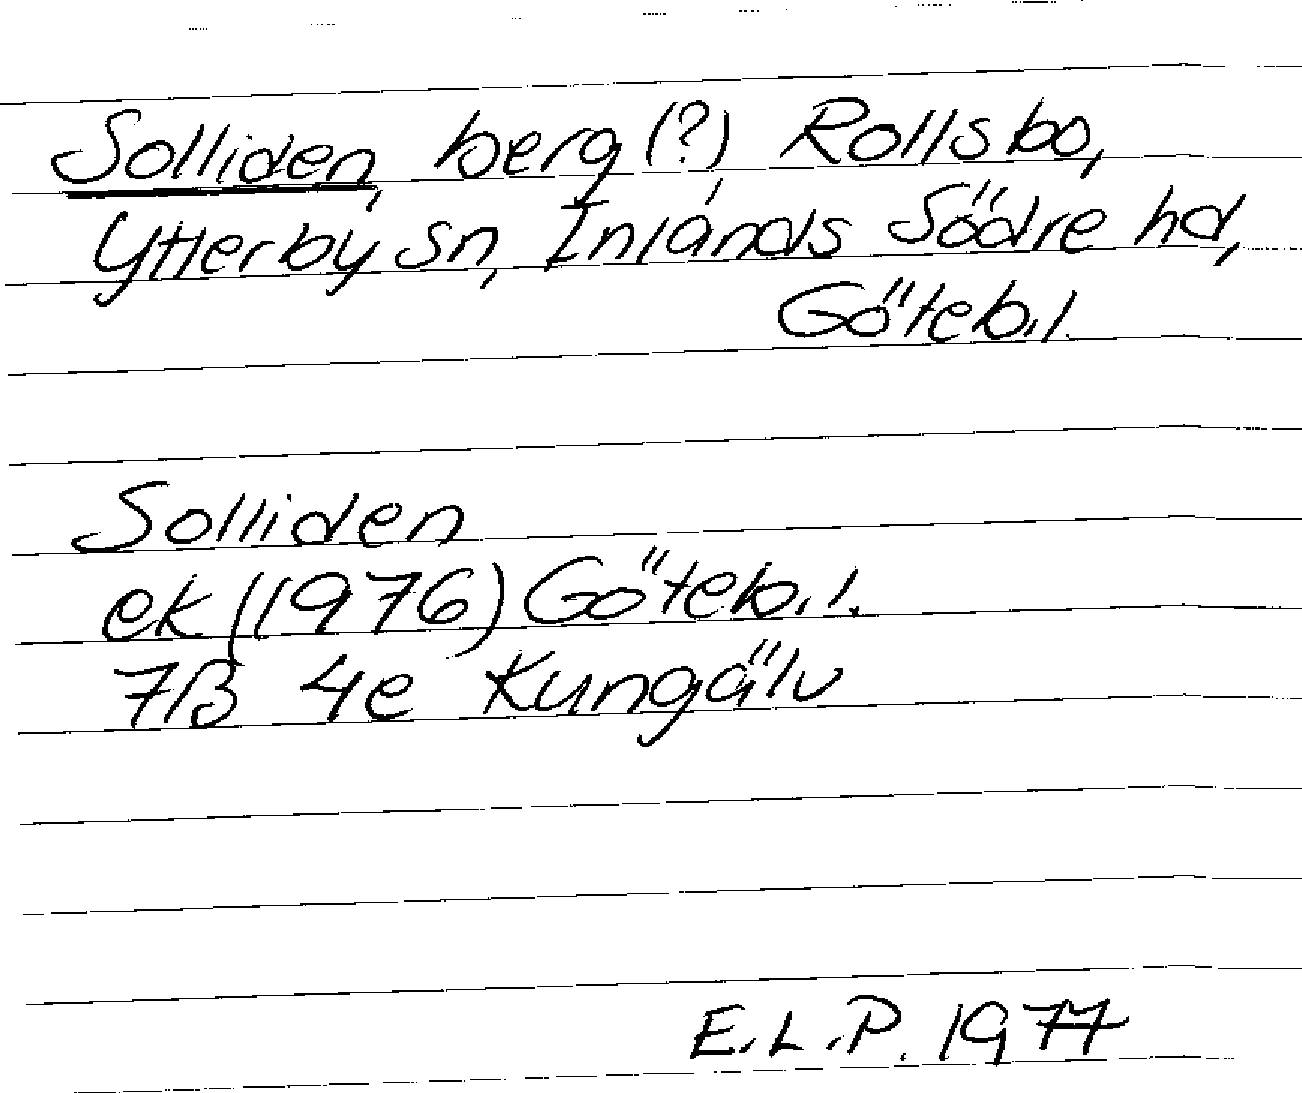 Solliden, berg (?) Rollsbo,
Ytterby sn, Inlands Södre hd,
Göteb.l.
Solliden
ek (1976) Göteb.l.
7B 4e Kungälv
E.L.P. 1977